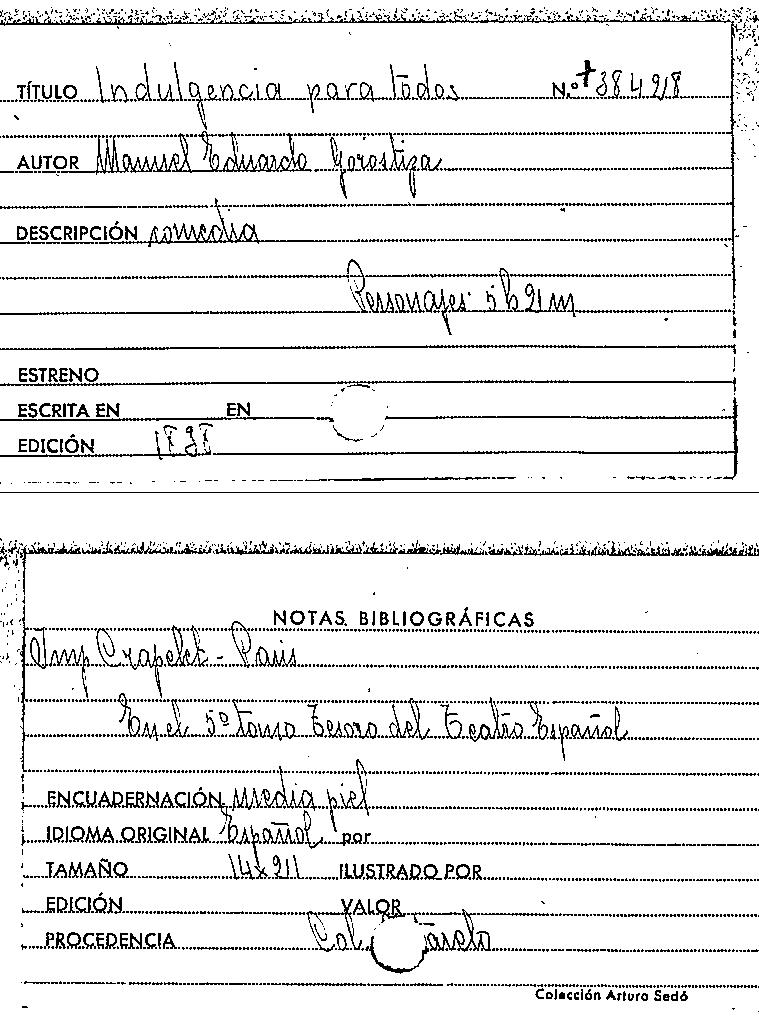 TÍTULO Indulgencia para todos N.º +38428
AUTOR Manuel Eduardo Gorostiza
DESCRIPCIÓN comedia
Personajes 5 h 2 m
ESTRENO
ESCRITA EN EN
EDICIÓN 1838
NOTAS BIBLIOGRÁFICAS
Imp Crapelet - Paris
En el 5º tomo Tesoro del Teatro Español
ENCUADERNACIÓN media piel
IDIOMA ORIGINAL Español por
TAMAÑO 14 x 21 ILUSTRADO POR
EDICIÓN VALOR
PROCEDENCIA Col.
Colección Arturo Sedó